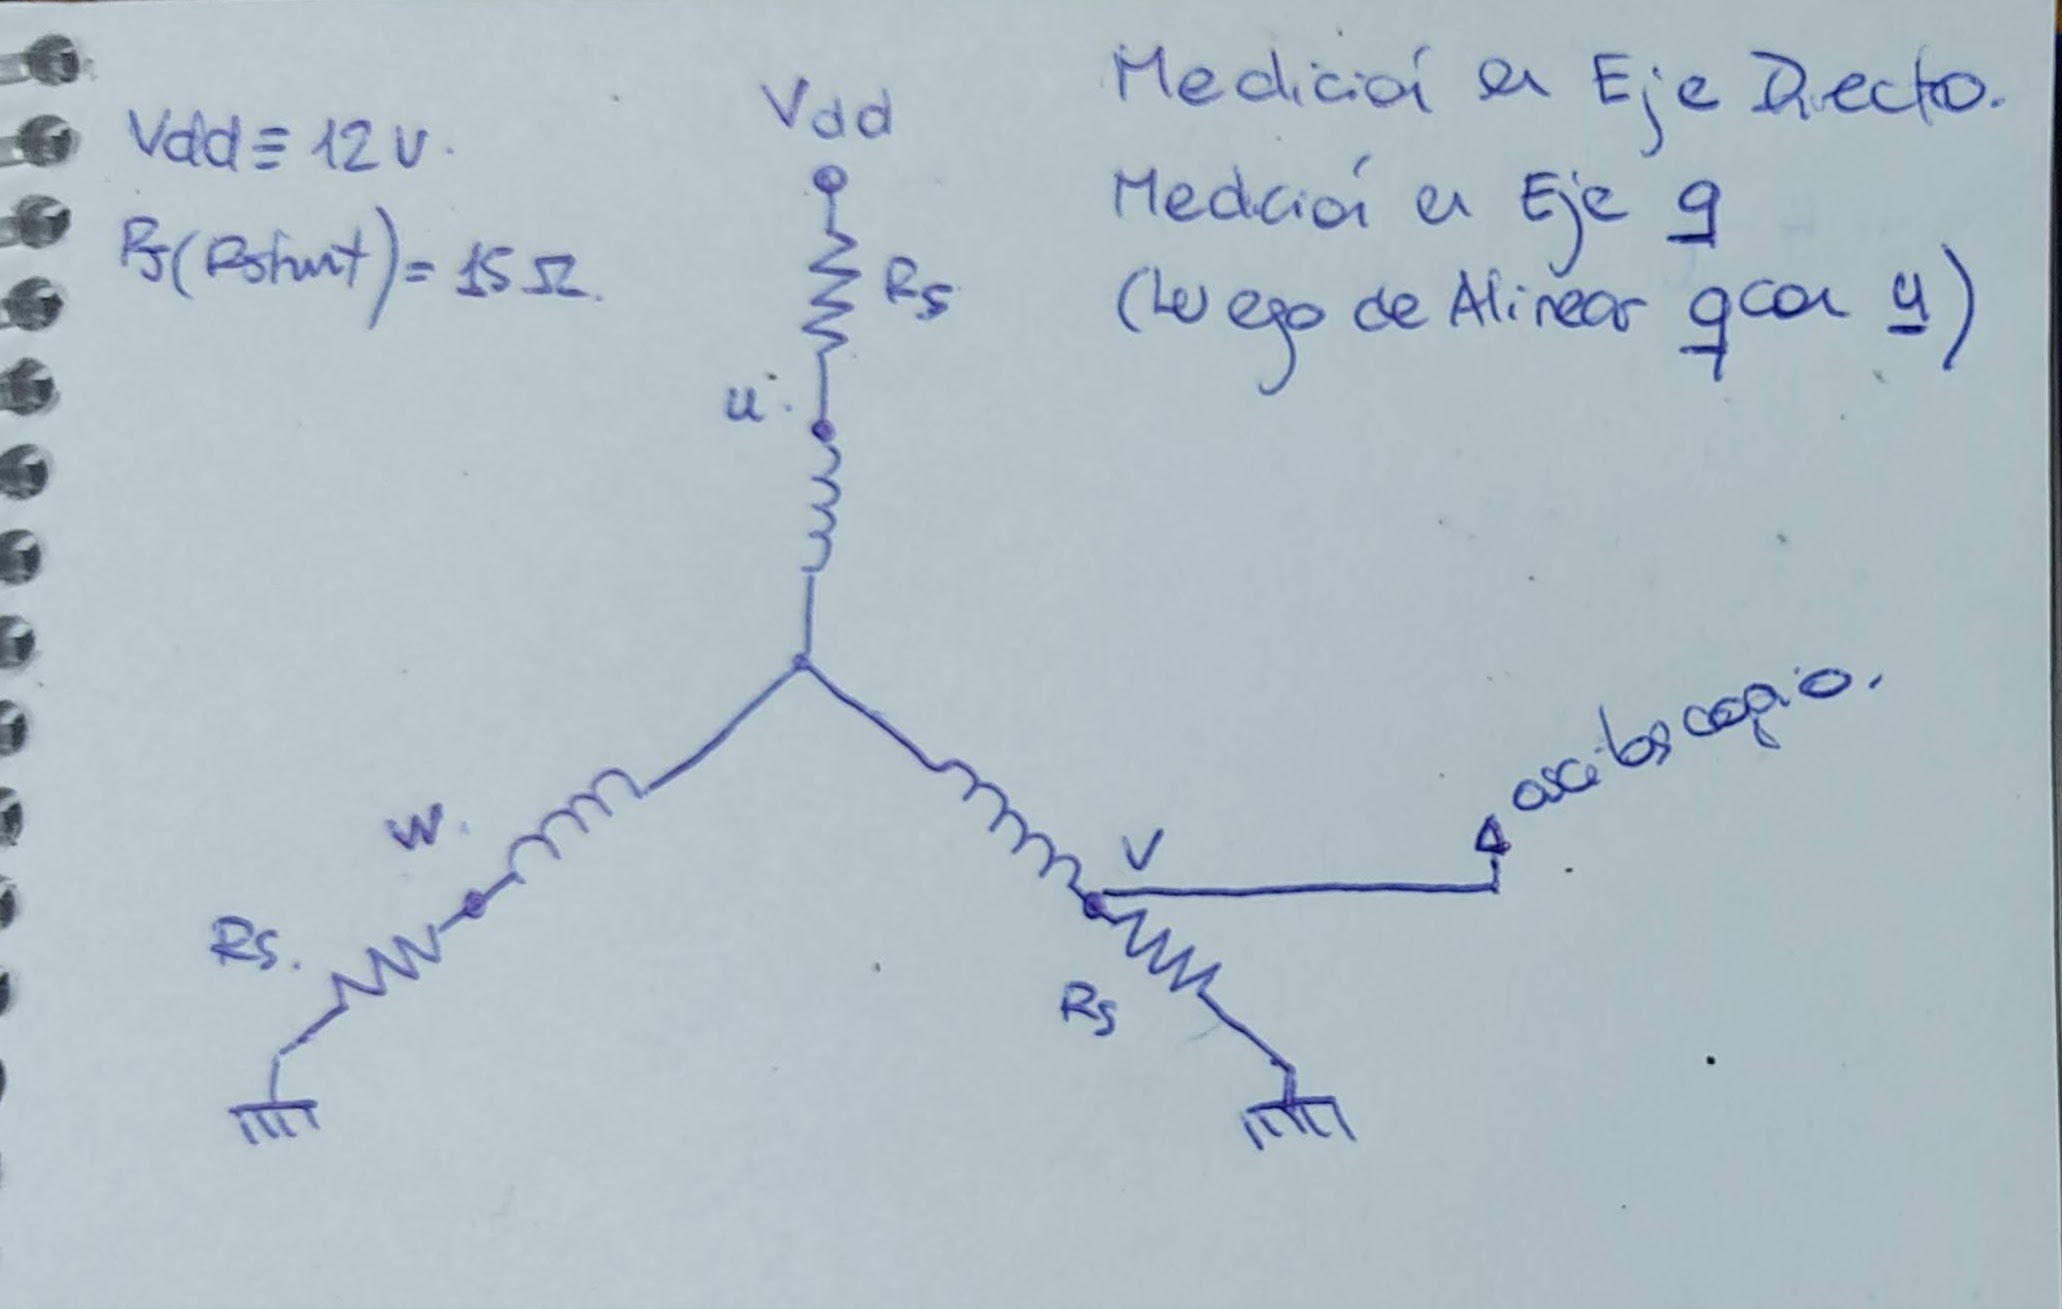 Vdd ≡ 12 V.
Rs (Rshunt) = 15 Ω.
Vdd
Medición en Eje Directo.
Medición en Eje q
(Luego de Alinear q con u)
Rs
u
osciloscopio.
W
V
Rs.
Rs